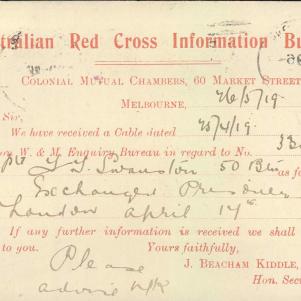 tralian Red Cross Information Bu
Colonial Mutual Chambers, 60 Market Street
Melbourne, 26/5/19.
Sir,
We have received a Cable dated 25/4/19.
on W. & M. Enquiry Bureau in regard to No. 33
Pte Swanston 50 Btn as fo
Exchanged Prisoner
London April 17th.
If any further information is received we shall
to you. Yours faithfully,
Please J. Beacham Kiddle,
advise Hon. Sec